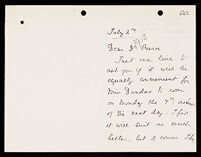 July 2nd
1913
Dear Dr Burn
Just one line to
ask you if it will be
equally convenient for
Miss Dundas to come
on Monday the 7th instead
of the next day. I find
it will suit us much
better, but of course, I